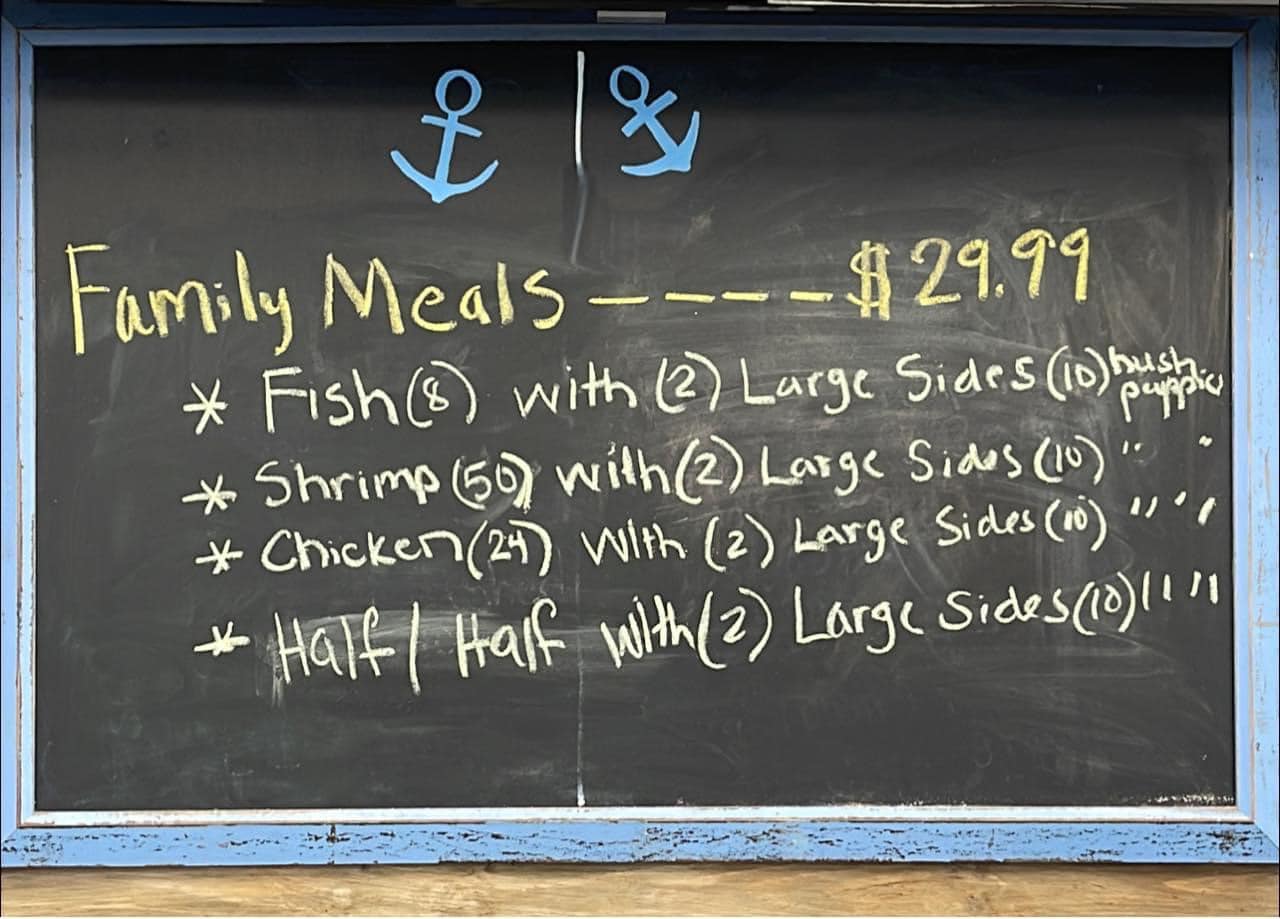 Family Meals ----$29.99
* Fish (8) with (2) Large Sides (10) hush puppies
* Shrimp (50) with (2) Large Sides (10) " "
* Chicken (24) With (2) Large Sides (10) " " "
* Half / Half with (2) Large Sides (10) " "